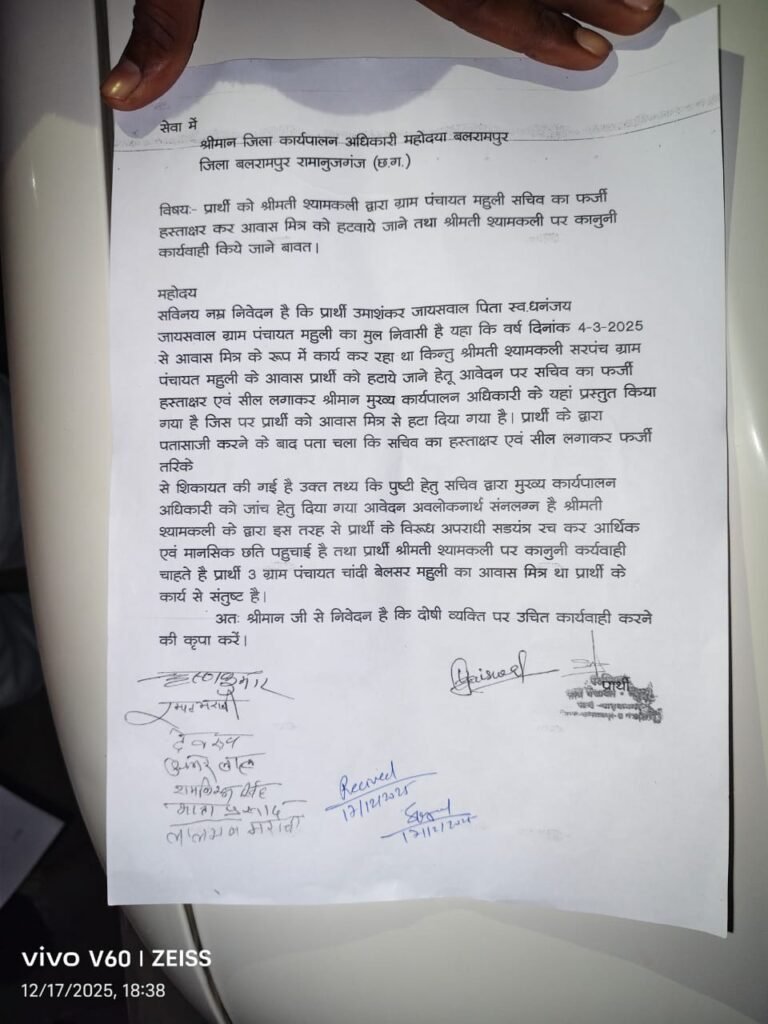 सेवा में
श्रीमान जिला कार्यपालन अधिकारी महोदया बलरामपुर
जिला बलरामपुर रामानुजगंज (छ.ग.)
विषयः- प्रार्थी को श्रीमती श्यामकली द्वारा ग्राम पंचायत महुली सचिव का फर्जी
हस्ताक्षर कर आवास मित्र को हटवाये जाने तथा श्रीमती श्यामकली पर कानुनी
कार्यवाही किये जाने बावत।
महोदय
सविनय नम्र निवेदन है कि प्रार्थी उमाशंकर जायसवाल पिता स्व.धनंजय
जायसवाल ग्राम पंचायत महुली का मुल निवासी है यहा कि वर्ष दिनांक 4-3-2025
से आवास मित्र के रूप में कार्य कर रहा था किन्तु श्रीमती श्यामकली सरपंच ग्राम
पंचायत महुली के आवास प्रार्थी को हटाये जाने हेतू आवेदन पर सचिव का फर्जी
हस्ताक्षर एवं सील लगाकर श्रीमान मुख्य कार्यपालन अधिकारी के यहां प्रस्तुत किया
गया है जिस पर प्रार्थी को आवास मित्र से हटा दिया गया है। प्रार्थी के द्वारा
पतासाजी करने के बाद पता चला कि सचिव का हस्ताक्षर एवं सील लगाकर फर्जी
तरिके
से शिकायत की गई है उक्त तथ्य कि पुष्टी हेतु सचिव द्वारा मुख्य कार्यपालन
अधिकारी को जांच हेतु दिया गया आवेदन अवलोकनार्थ संनलग्न है श्रीमती
श्यामकली के द्वारा इस तरह से प्रार्थी के विरूध अपराधी सडयंत्र रच कर आर्थिक
एवं मानसिक छति पहुचाई है तथा प्रार्थी श्रीमती श्यामकली पर कानुनी कर्यवाही
चाहते है प्रार्थी 3 ग्राम पंचायत चांदी बेलसर महुली का आवास मित्र था प्रार्थी के
कार्य से संतुष्ट है।
अतः श्रीमान जी से निवेदन है कि दोषी व्यक्ति पर उचित कार्यवाही करने
की कृपा करें।
प्रार्थी
Recived
17/12/2025
लालमन मरावी
vivo V60 | ZEISS
12/17/2025, 18:38